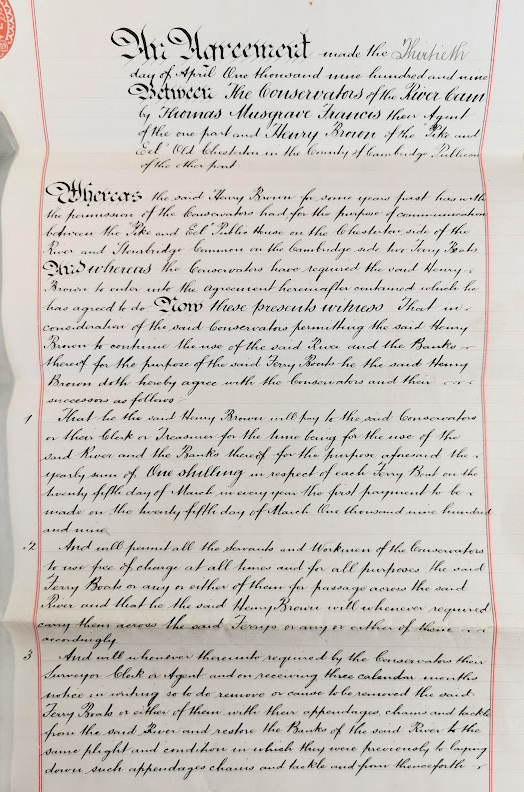 An Agreement made the Thirtieth
day of April One thousand nine hundred and nine
Between The Conservators of the River Cam
by Thomas Musgrave Francis their Agent
of the one part and Henry Brown of the Pike and
Eel Old Chesterton in the County of Cambridge Publican
of the other part
Whereas the said Henry Brown for some years past has with
the permission of the Conservators had for the purpose of communication
between the Pike and Eel Public House on the Chesterton side of the
River and Stourbridge Common on the Cambridge side two Ferry Boats
And whereas the Conservators have required the said Henry
Brown to enter into the agreement hereinafter contained which he
has agreed to do Now these presents witness That in
consideration of the said Conservators permitting the said Henry
Brown to continue the use of the said River and the Banks
thereof for the purpose of the said Ferry Boats he the said Henry
Brown doth hereby agree with the Conservators and their
successors as follows
1 That he the said Henry Brown will pay to the said Conservators
or their Clerk or Treasurer for the time being for the use of the
said River and the Banks thereof for the purpose aforesaid the
yearly sum of One shilling in respect of each Ferry Boat on the
twenty fifth day of March in every year the first payment to be
made on the twenty fifth day of March One thousand nine hundred
and nine
2 And will permit all the servants and Workmen of the Conservators
to use free of charge at all times and for all purposes the said
Ferry Boats or any or either of them for passage across the said
River and that he the said Henry Brown will whenever required
carry them across the said Ferrys or any or either of them
accordingly
3 And will whensoever thereunto required by the Conservators their
Surveyor Clerk or Agent and on receiving three calendar months
notice in writing so to do remove or cause to be removed the said
Ferry Boats or either of them with their appendages, chains and tackle
from the said River and restore the Banks of the said River to the
same plight and condition in which they were previously to laying
down such appendages chains and tackle and from thenceforth